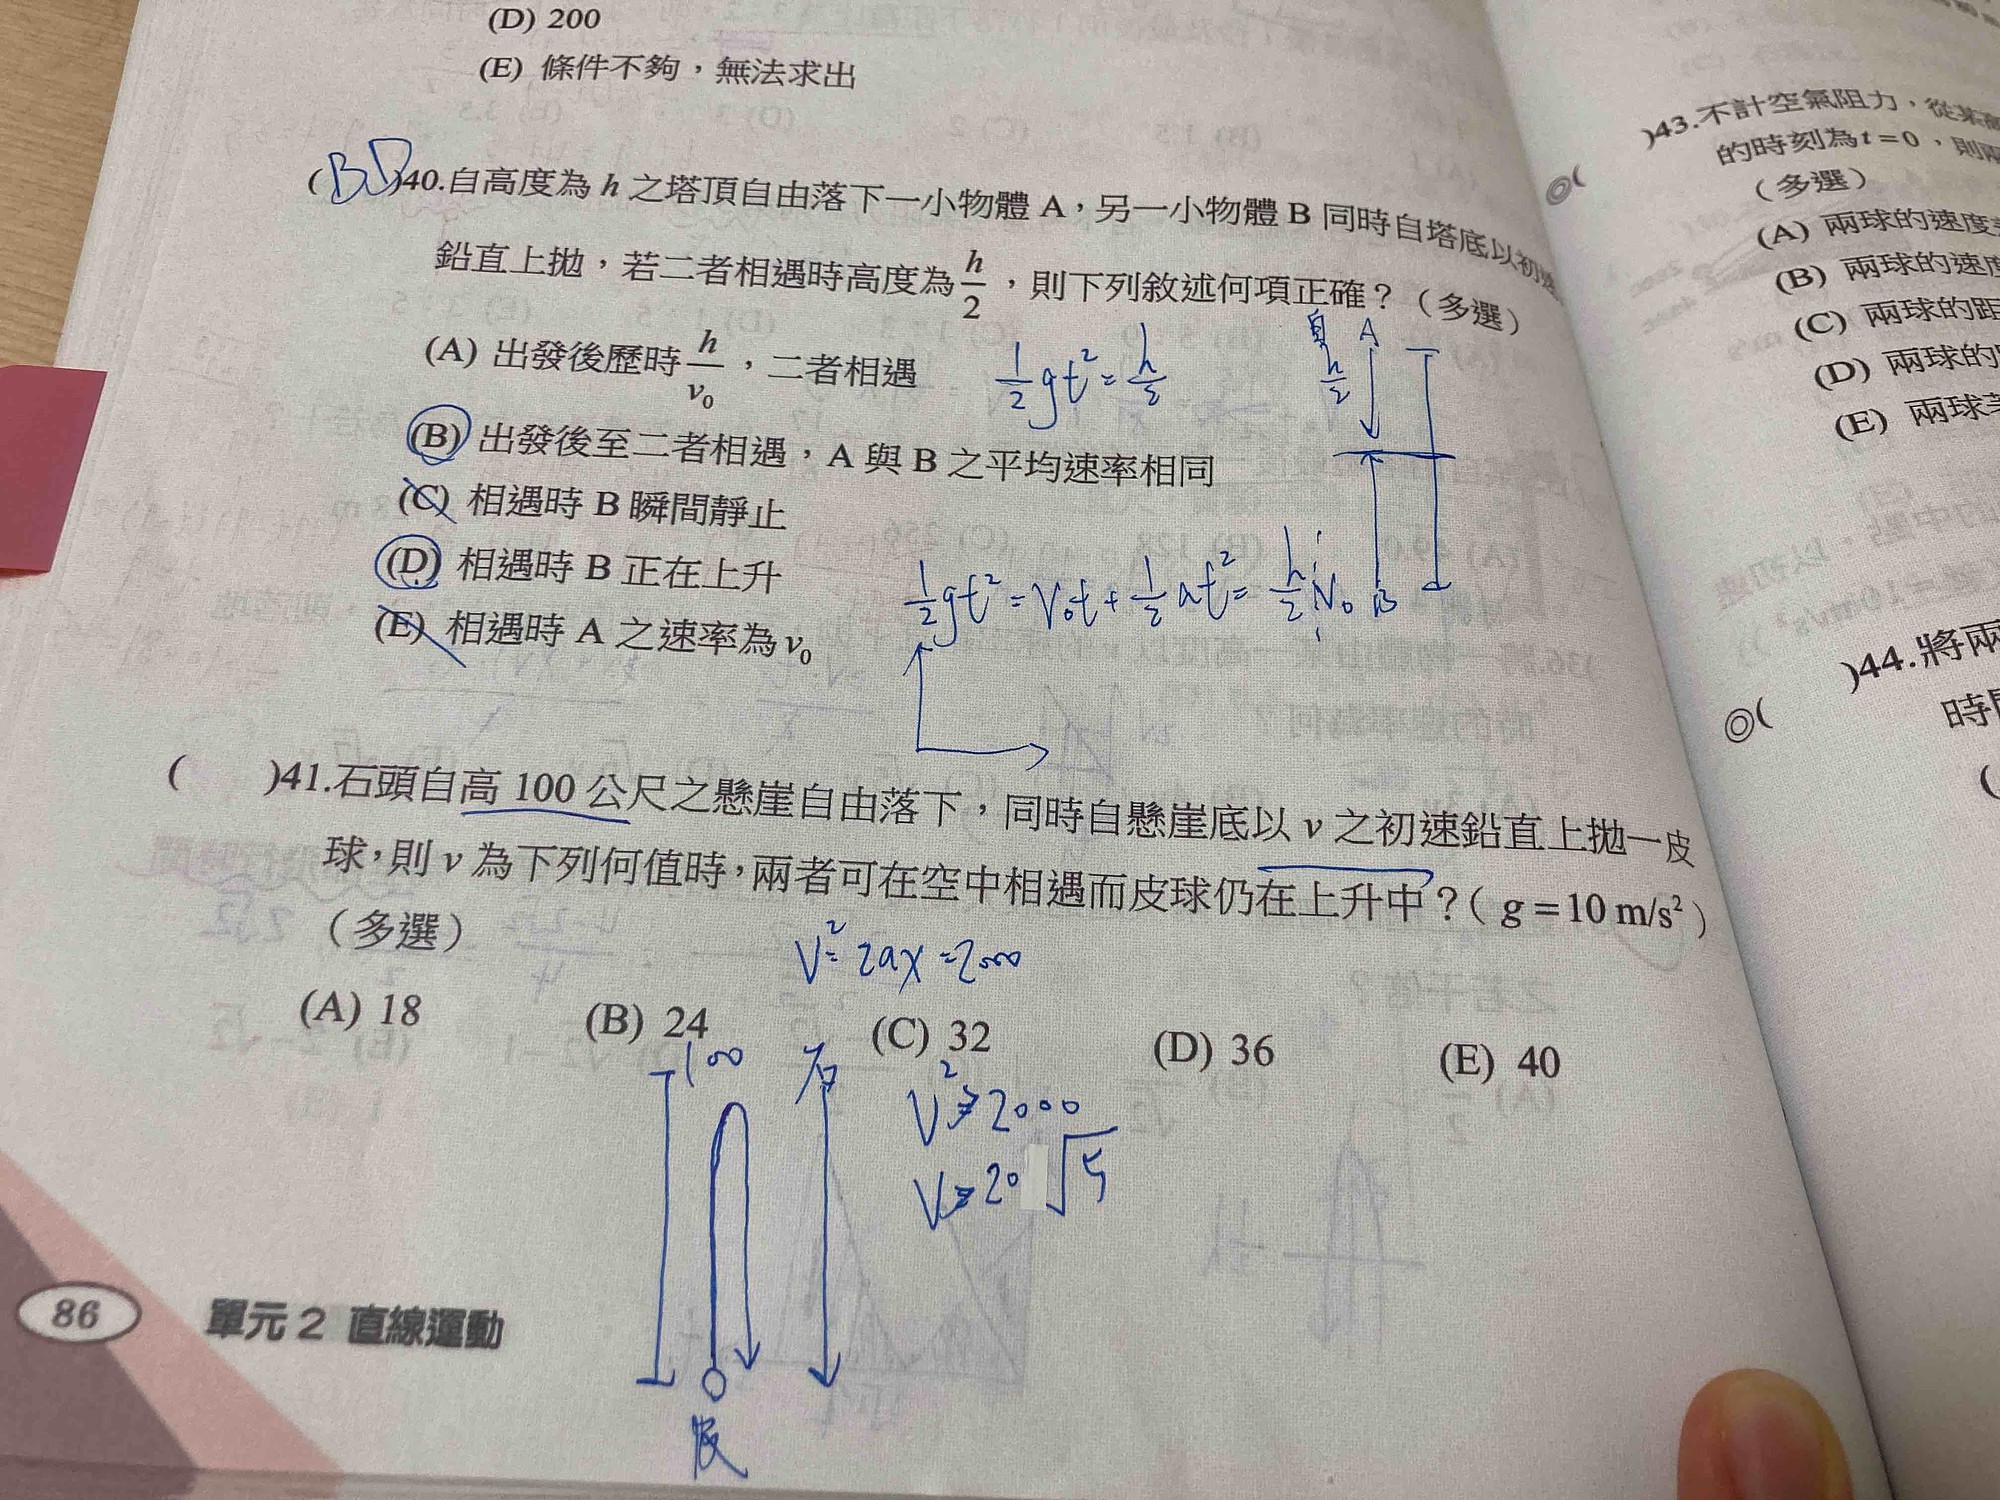 (D) 200
(E) 條件不夠，無法求出
(BD)40.自高度為 h 之塔頂自由落下一小物體 A，另一小物體 B 同時自塔底以初
鉛直上拋，若二者相遇時高度為 h/2，則下列敘述何項正確？（多選）
(A) 出發後歷時 h/v₀，二者相遇
(B) 出發後至二者相遇，A 與 B 之平均速率相同
(C) 相遇時 B 瞬間靜止
(D) 相遇時 B 正在上升
(E) 相遇時 A 之速率為 v₀
1/2 gt² = h/2
自 A
h/2
1/2 gt² = V₀t + 1/2 at² = h/2
V₀ B
( )41.石頭自高 100 公尺之懸崖自由落下，同時自懸崖底以 v 之初速鉛直上拋一皮
球，則 v 為下列何值時，兩者可在空中相遇而皮球仍在上升中？( g = 10 m/s² )
（多選）
V² = 2ax = 2000
(A) 18 (B) 24 (C) 32 (D) 36 (E) 40
100 石
V² ≥ 2000
V ≥ 20 √5
皮
86 單元 2 直線運動
)43.不計空氣阻力，從某
的時刻為 t = 0，則兩
（多選）
(A) 兩球的速度
(B) 兩球的速度
(C) 兩球的距
(D) 兩球的
(E) 兩球
)44.將兩
時